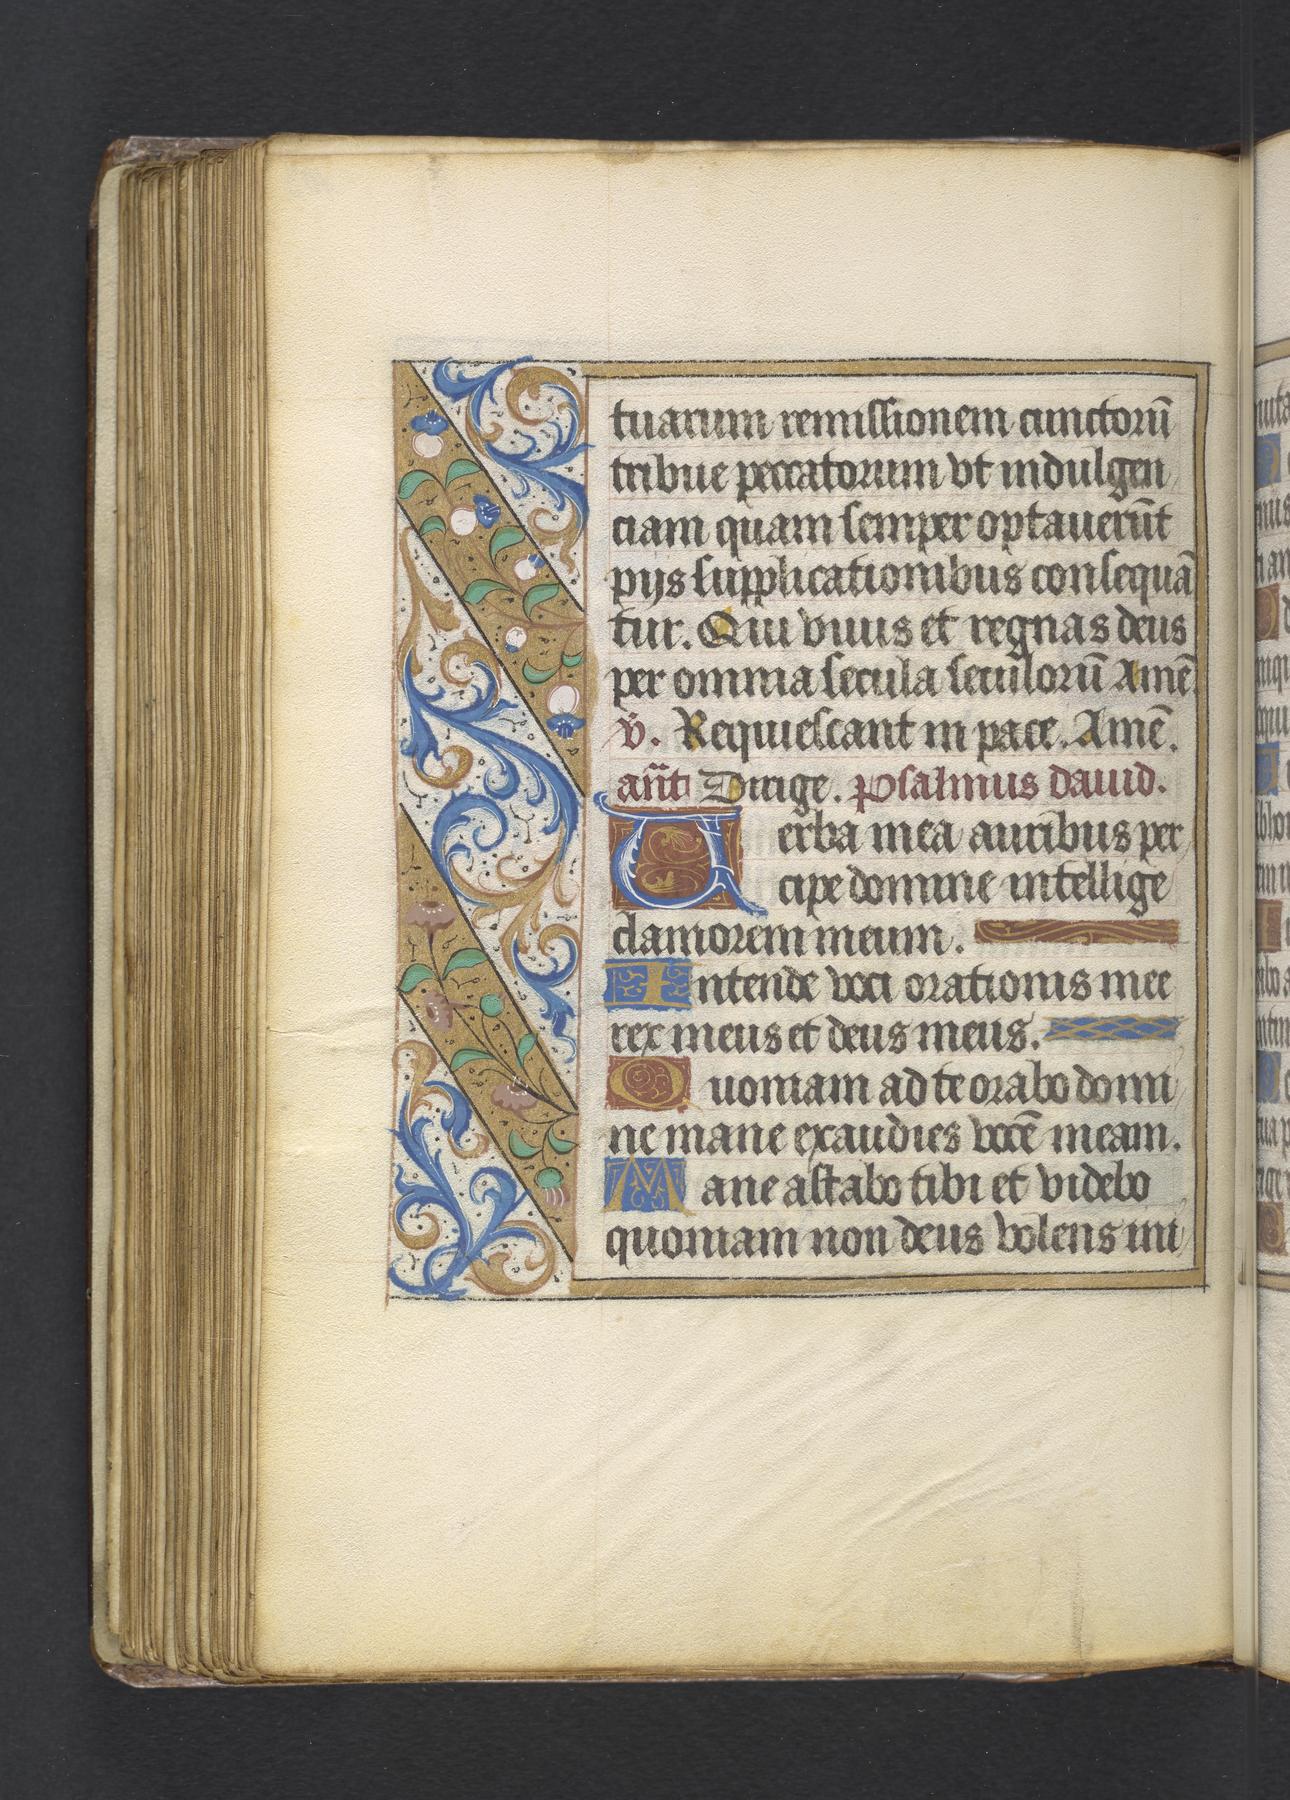 tuarum remissionem cunctorū
tribue peccatorum vt indulgen
ciam quam semper optauerūt
pijs supplicationibus consequā
tur. Qui viuis et regnas deus
per omnia secula seculorū Amē.
v̄. Requiescant in pace. Amē.
añt Dirige. Psalmus dauid.
Uerba mea auribus per
cipe domine intellige
clamorem meum.
Intende voci orationis mee
rex meus et deus meus.
Quoniam ad te orabo domi
ne mane exaudies vocē meam.
Mane astabo tibi et videbo
quoniam non deus volens ini